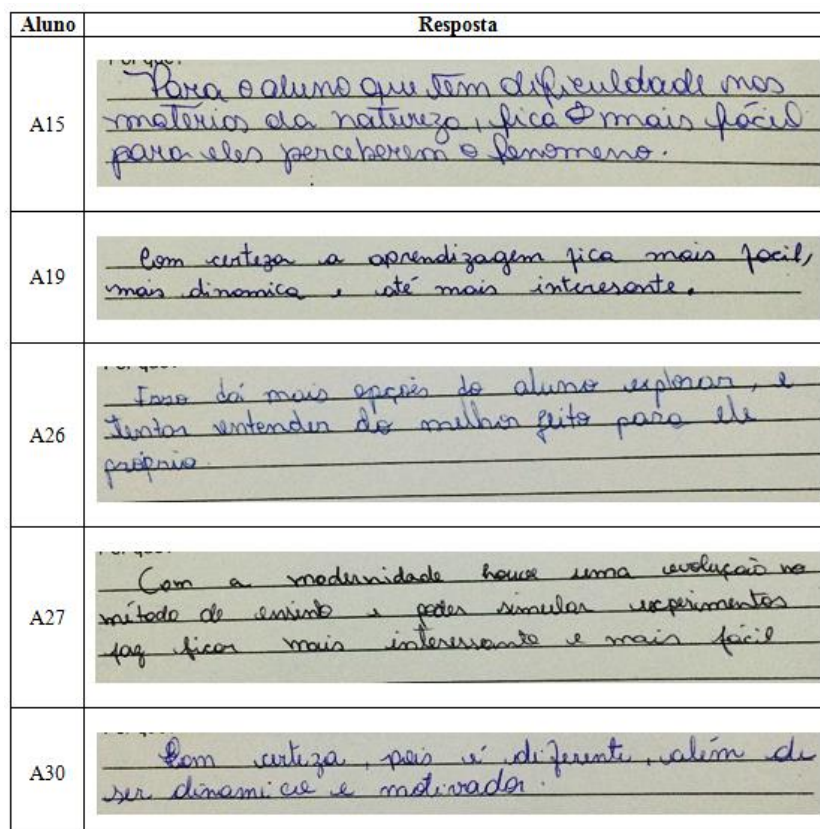 Aluno Resposta
A15
Para o aluno que tem dificuldade nas
materios da natureza, fica mais fácil
para eles perceberem o fenomeno.
A19
Com certeza a aprendizagem fica mais facil,
mais dinamica e até mais interesante.
A26
Isso dá mais opções do aluno explorar, e
tentar entender do melhor jeito para ele
próprio.
A27
Com a modernidade houve uma evolução no
método de ensino e poder simular experimentos
faz ficar mais interessante e mais fácil
A30
Com certeza, pois é diferente, além de
ser dinamico e motivador.